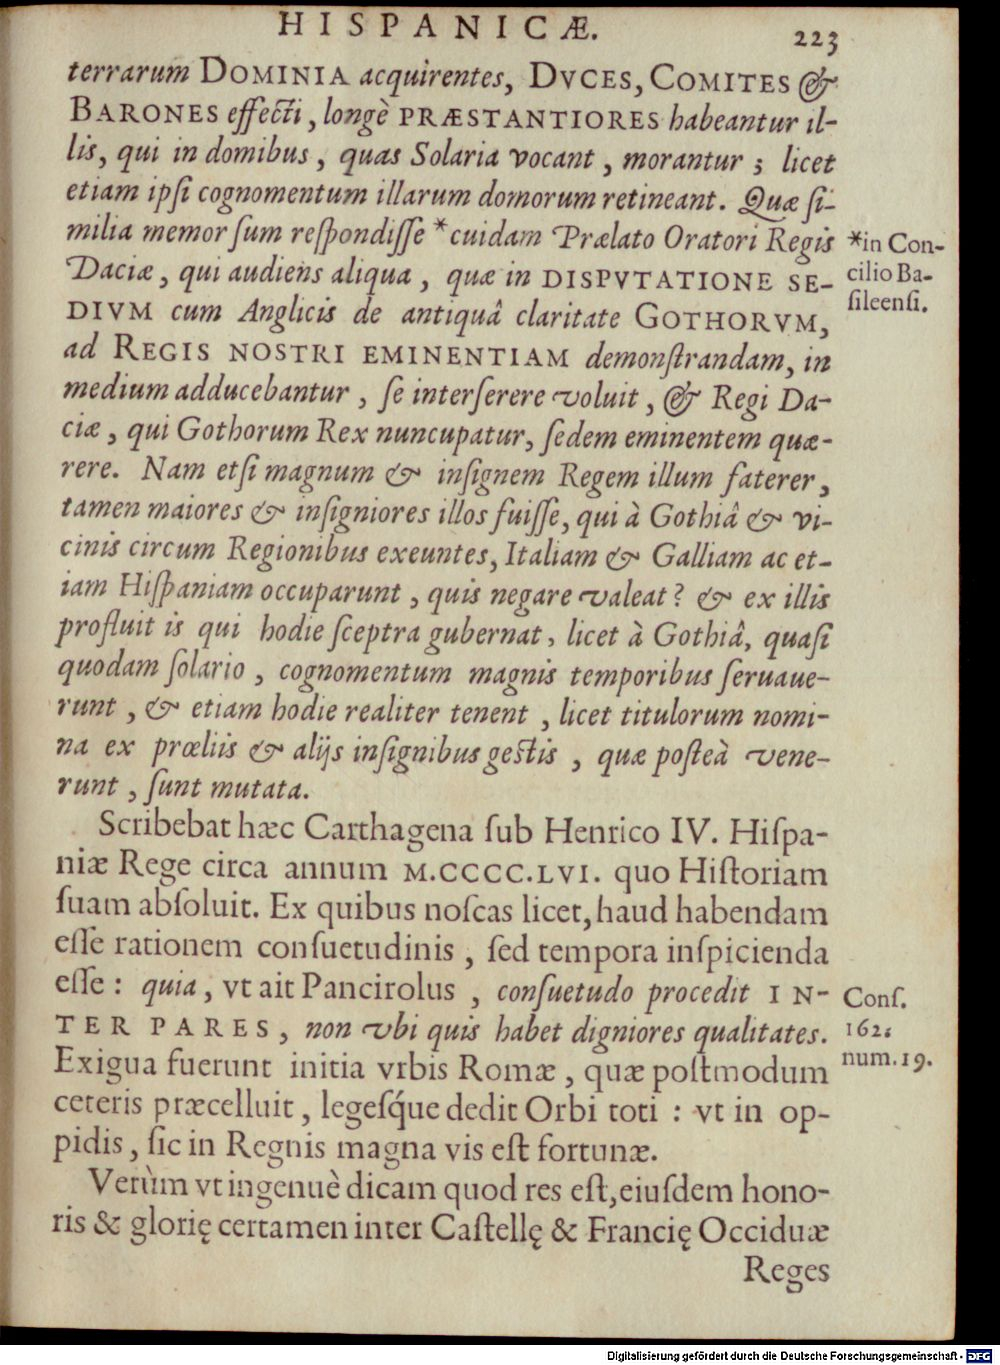 HISPANICÆ.
223
terrarum DOMINIA acquirentes, DVCES, COMITES &
BARONES effecti, longè PRÆSTANTIORES habeantur il-
lis, qui in domibus, quas Solaria vocant, morantur; licet
etiam ipſi cognomentum illarum domorum retineant. Quæ ſi-
milia memor ſum reſpondiſſe * cuidam Prælato Oratori Regis
Daciæ, qui audiens aliqua, quæ in DISPVTATIONE SE-
DIVM cum Anglicis de antiquâ claritate GOTHORVM,
ad REGIS NOSTRI EMINENTIAM demonſtrandam, in
medium adducebantur, ſe interſerere voluit, & Regi Da-
ciæ, qui Gothorum Rex nuncupatur, ſedem eminentem quæ-
rere. Nam etſi magnum & inſignem Regem illum faterer,
tamen maiores & inſigniores illos fuiſſe, qui à Gothiâ & vi-
cinis circum Regionibus exeuntes, Italiam & Galliam ac et-
iam Hiſpaniam occuparunt, quis negare valeat? & ex illis
profluit is qui hodie ſceptra gubernat, licet à Gothiâ, quaſi
quodam ſolario, cognomentum magnis temporibus ſeruaue-
runt, & etiam hodie realiter tenent, licet titulorum nomi-
na ex prœliis & alijs inſignibus geſtis, quæ poſteà vene-
runt, ſunt mutata.
*in Con-
cilio Ba-
ſileenſi.
Scribebat hæc Carthagena ſub Henrico IV. Hiſpa-
niæ Rege circa annum M.CCCC.LVI. quo Hiſtoriam
ſuam abſoluit. Ex quibus noſcas licet, haud habendam
eſſe rationem conſuetudinis, ſed tempora inſpicienda
eſſe: quia, vt ait Pancirolus, conſuetudo procedit IN-
TER PARES, non vbi quis habet digniores qualitates.
Exigua fuerunt initia vrbis Romæ, quæ poſtmodum
ceteris præcelluit, legeſq́ue dedit Orbi toti: vt in op-
pidis, ſic in Regnis magna vis eſt fortunæ.
Conſ.
162.
num.19.
Verùm vt ingenuè dicam quod res eſt, eiuſdem hono-
ris & glorię certamen inter Caſtellę & Francię Occiduæ
Reges
Digitalisierung gefördert durch die Deutsche Forschungsgemeinschaft - DFG